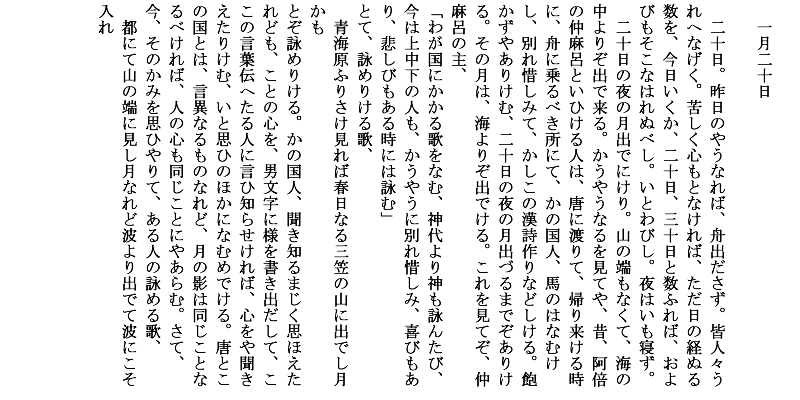 一月二十日
二十日。昨日のやうなれば、舟出ださず。皆人々う
れへなげく。苦しく心もとなければ、ただ日の経ぬる
数を、今日いくか、二十日、三十日と数ふれば、およ
びもそこなはれぬべし。いとわびし。夜はいも寝ず。
二十日の夜の月出でにけり。山の端もなくて、海の
中よりぞ出で来る。かうやうなるを見てや、昔、阿倍
の仲麻呂といひける人は、唐に渡りて、帰り来ける時
に、舟に乗るべき所にて、かの国人、馬のはなむけ
し、別れ惜しみて、かしこの漢詩作りなどしける。飽
かずやありけむ、二十日の夜の月出づるまでぞありけ
る。その月は、海よりぞ出でける。これを見てぞ、仲
麻呂の主、
「わが国にかかる歌をなむ、神代より神も詠んたび、
今は上中下の人も、かうやうに別れ惜しみ、喜びもあ
り、悲しびもある時には詠む」
とて、詠めりける歌、
青海原ふりさけ見れば春日なる三笠の山に出でし月
かも
とぞ詠めりける。かの国人、聞き知るまじく思ほえた
れども、ことの心を、男文字に様を書き出だして、こ
この言葉伝へたる人に言ひ知らせければ、心をや聞き
えたりけむ、いと思ひのほかになむめでける。唐とこ
の国とは、言異なるものなれど、月の影は同じことな
るべければ、人の心も同じことにやあらむ。さて、
今、そのかみを思ひやりて、ある人の詠める歌、
都にて山の端に見し月なれど波より出でて波にこそ
入れ